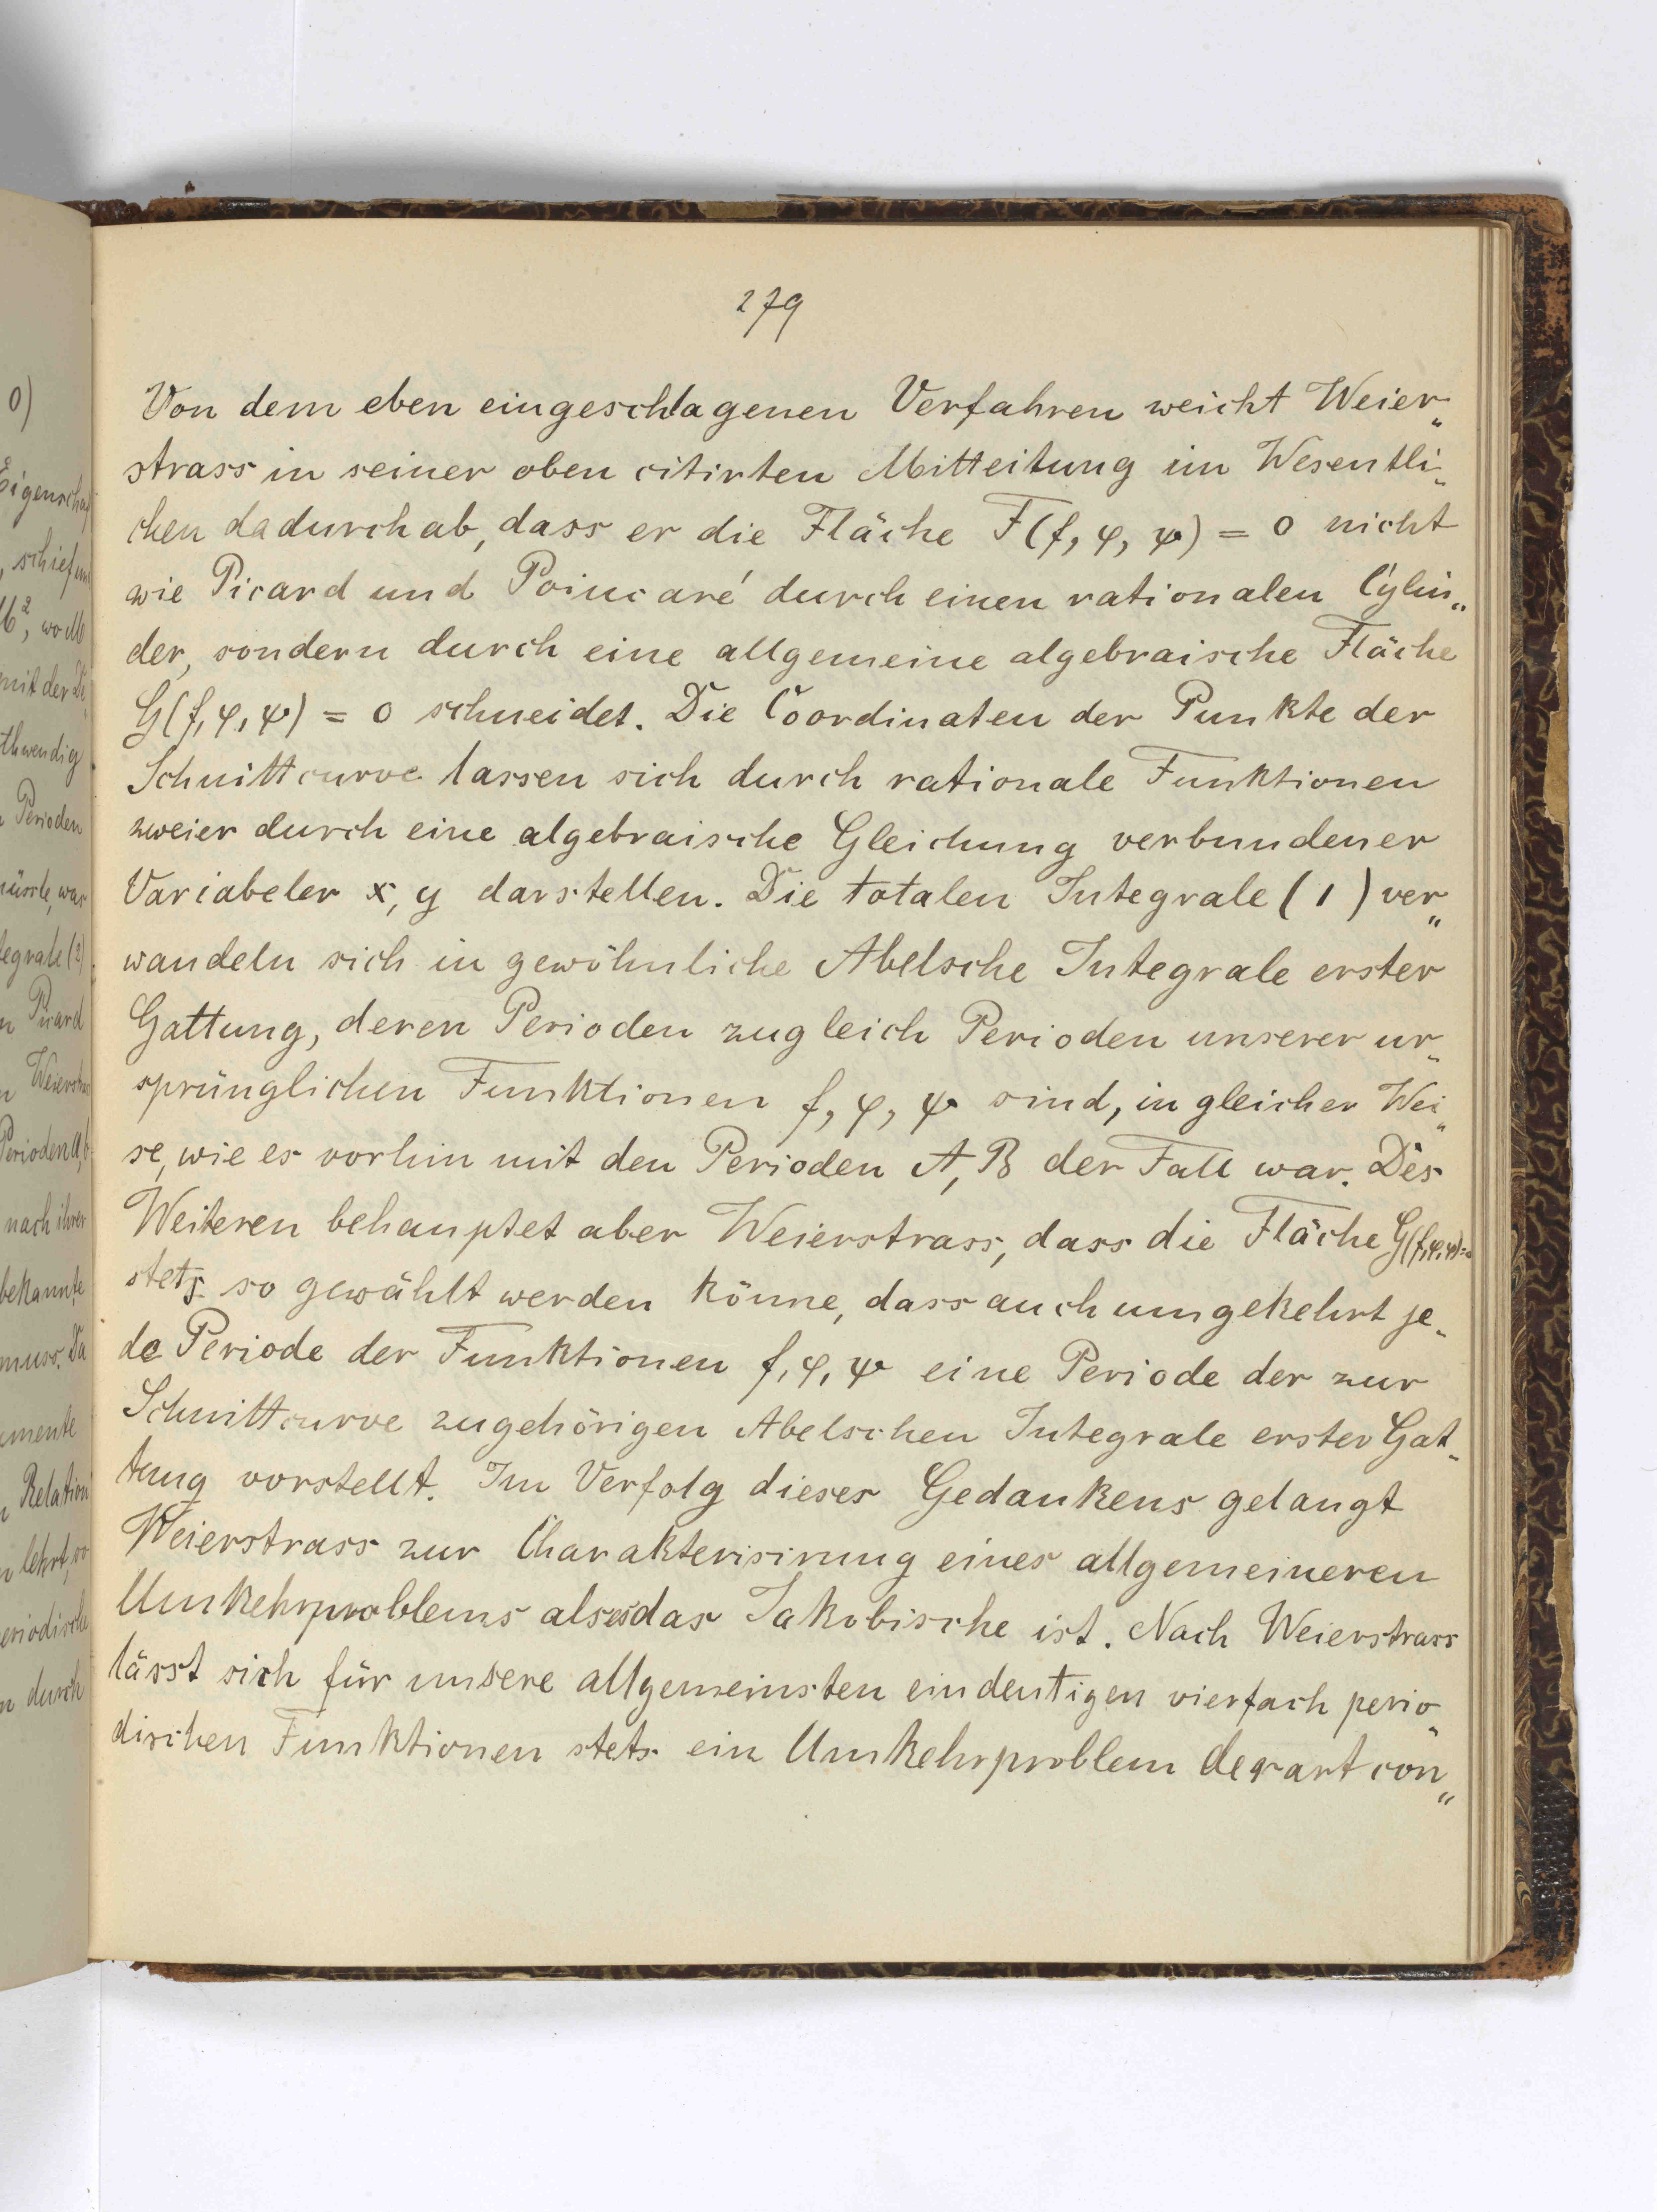 279
Von dem eben eingeschlagenen Verfahren weicht Weier„
strass in seiner oben citirten Mitteitung im Wesentli„
chen dadurch ab, dass er die Fläche F(f, φ, ψ) = 0 nicht
wie Picard und Poincaré durch einen rationalen Cylin„
der, sondern durch eine allgemeine algebraische Fläche
G(f, φ, ψ) = 0 schneidet. Die Coordinaten der Punkte der
Schnittcurve lassen sich durch rationale Funktionen
zweier durch eine algebraische Gleichung verbundener
Variabeler x, y darstellen. Die totalen Integrale (1) ver„
wandeln sich in gewöhnliche Abelsche Integrale erster
Gattung, deren Perioden zugleich Perioden unserer ur„
sprünglichen Funktionen f, φ, ψ sind, in gleicher Wei„
se, wie es vorhin mit den Perioden A, B der Fall war. Des
Weiteren behauptet aber Weierstrass, dass die Fläche G(f,φ,ψ)=0
stets so gewählt werden könne, dass auch umgekehrt je„
de Periode der Funktionen f, φ, ψ eine Periode der zur
Schnittcurve zugehörigen Abelschen Integrale erster Gat„
tung vorstellt. Im Verfolg dieses Gedankens gelangt
Weierstrass zur Charakterisirung eines allgemeineren
Umkehrproblems als es das Jakobische ist. Nach Weierstrass
lässt sich für unsere allgemeinsten eindeutigen vierfach perio„
dischen Funktionen stets ein Umkehrproblem derart con„
0)
Eigenschaf
, schief und
M², wo M
mit der Di„
thwendig
Perioden
müsste, was
tegrale (2)
Picard
Weierstras
Perioden a, b
nach ihrer
bekannte
muss. Da
emente
Relation
lehrt, so
eriodische
n durch